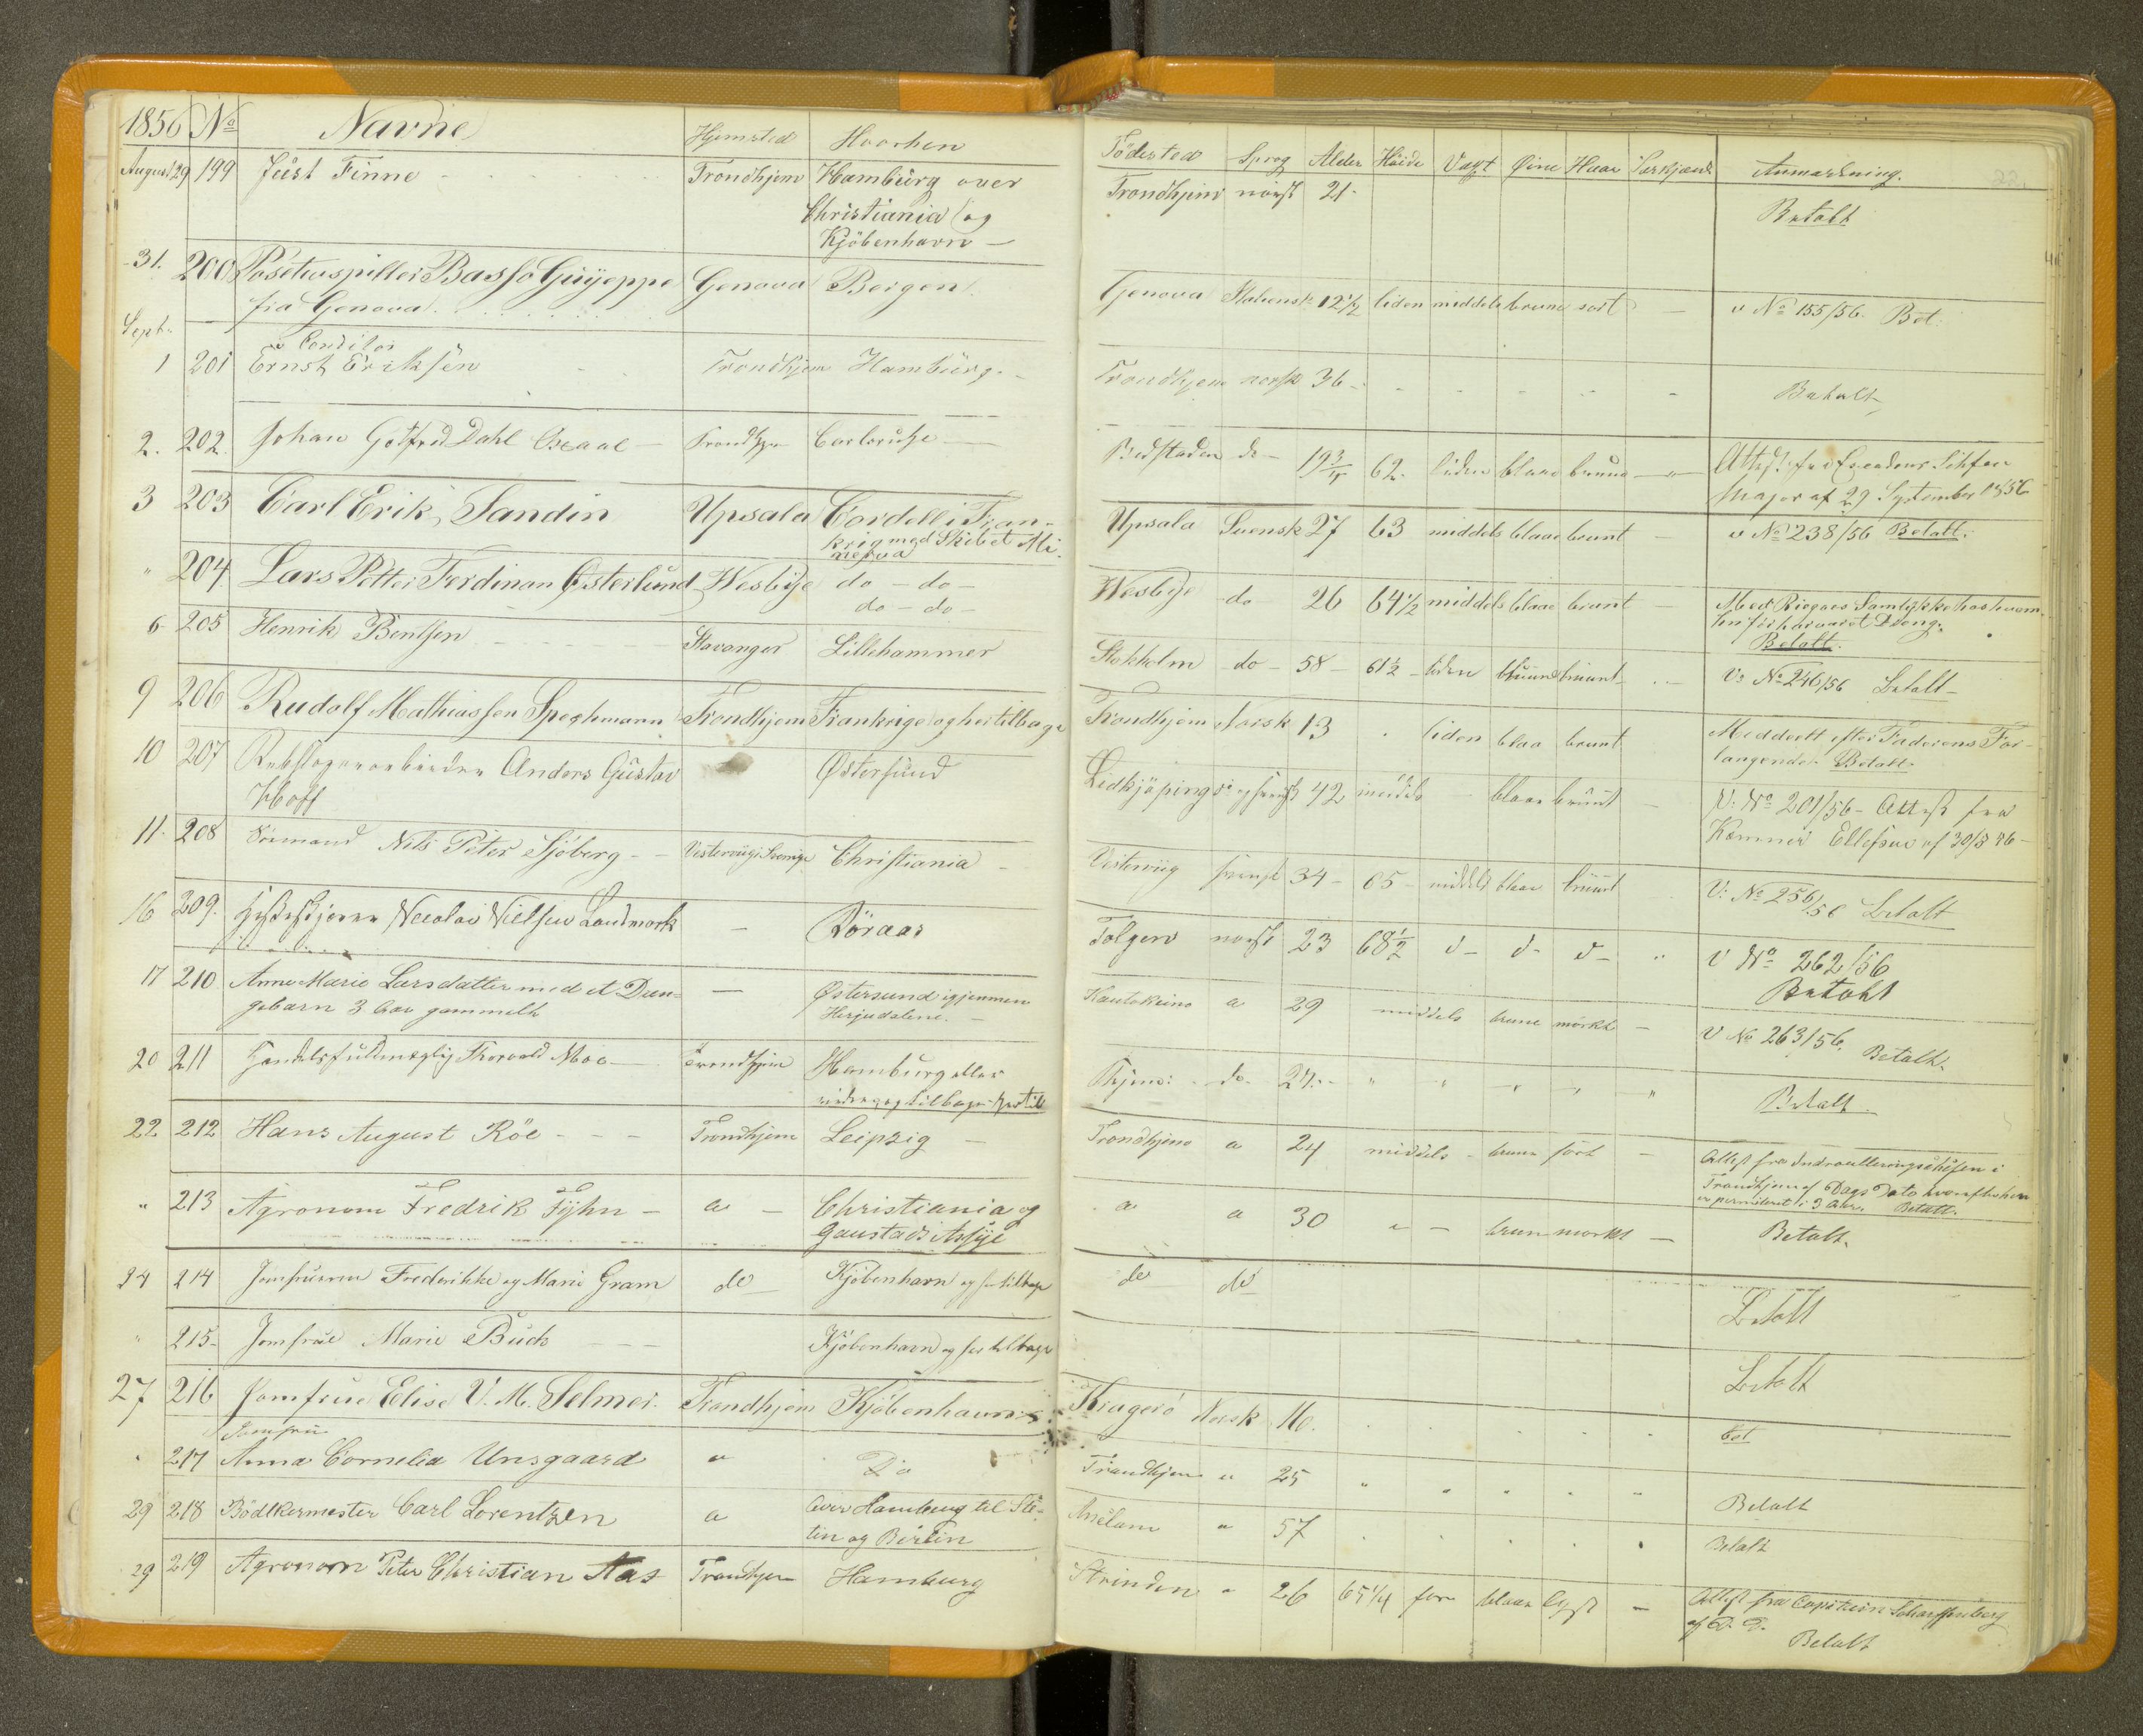 1856 No Navne Hjemsted Hvorhen
August 29 199 Just Finne Trondhjem Hamburg over
Christiania og
Kjöbenhavn
31. 200 Positivspiller Basso Guiseppe Genova Bergen
fra Genova
Sept.
Conditor
1 201 Ernst Eriksen Trondhjem Hamburg
2. 202. Johan Gotfred Dahl Trondhjem Carlsruhe
3 203 Carl Erik Sandin Upsala Cordell i Fran-
krig med Skibet Mi-
nerva
" 204 Lars Petter Ferdinan Østerlund Wesbye do do
do - do -
6 205 Henrik Bentsen Stavanger Lillehammer
9 206 Rudolf Mathiassen Speshmann Trondhjem Frankrige og her tilbage
10 207 Anders Gustav Østersund
Hoff
11. 208 Sömand Nils Peter Sjöberg Vestervig i Sverige Christiania
16 209. Nicolai Nielsen Landmark — Röraas
17 210 Anne Marie Larsdatter med et Dren- — Østersund igjennem
gebarn 3 Aar gammelt Herjedalene.
20 211 Handelsfuldmægtig Thorvald Moe Trondhjem Hamburg eller
videre og tilbage hertil
22 212 Hans August Röe Trondhjem Leipzig
" 213 Agronom Fredrik Fyhn a Christiania og
Gaustads Asyl
24 214 Jomfruerne Frederikke og Marie Gram do Kjöbenhavn og her tilbage
" 215 Jomfrue Marie Buck Kjöbenhavn og her tilbage
27 216 Jomfrue Elise V. M. Selmer. Trondhjem Kjöbenhavn
Jomfru
217 Anna Cornelia Unsgaard " Do
29 218 Bödkermester Carl Lorentzen a Over Hamburg til Ste-
tin og Berlin
29 219 Agronom Peter Christian Aas Trondhjem Hamburg
Födested Sprog Alder Höide Vaxt Øine Haar Særkjende Anmærkning.
Trondhjem norsk 21 Betalt
Genova Italiensk 12 1/2 liden middels brune sort — v No 155/56. Bet.
Trondhjem norsk 36 Betalt
do 19 3/4 62. liden blaae brune Attest fra
Major af 29 September 1856
Upsala Svensk 27 63 middels blaae brunt — v No 238/56 Betalt.
Wesbye do 26 64 1/2 middels blaae brunt — Med Riegaes Samtykke hos hvem
han før har været Dreng.
Betalt.
Stokholm do 58 61 1/2 liden brunt V: No 246/56 Betalt
Trondhjem Norsk 13 liden blaa brunt Meddeelt efter Faderens For-
langende. Betalt.
Lidkjöping 42 middels blaae brunt — V: No 201/56 - Attest fra
Kæmner Ellefsen af 30/8 46
Vestervig svensk 34 65 middels blaae brunt V: No 256/56 Betalt
Tolgen norsk 23 68 1/2 d d d v No 262/56
Betalt
Kautokeino a 29 middels brune mörkt — V No 263/56. Betalt.
Thjem: do 24 " " " " " Betalt
Trondhjem a 24 middels brune sort — Attest fra Indroulleringschefen i
Trondhjem af Dags Dato hvorefter han
er permitteret i 3 Aar. Betalt.
a a 30 " brun morkt — Betalt.
do do Betalt
Betalt
Kragerö Norsk 16. Bet
Trondhjem " 25 " " " " " Betalt
" 57 Betalt
Strinden " 26 65 1/4 før blaae lyst — Attest fra Capitain Scharffenberg
af D. D.
Betalt